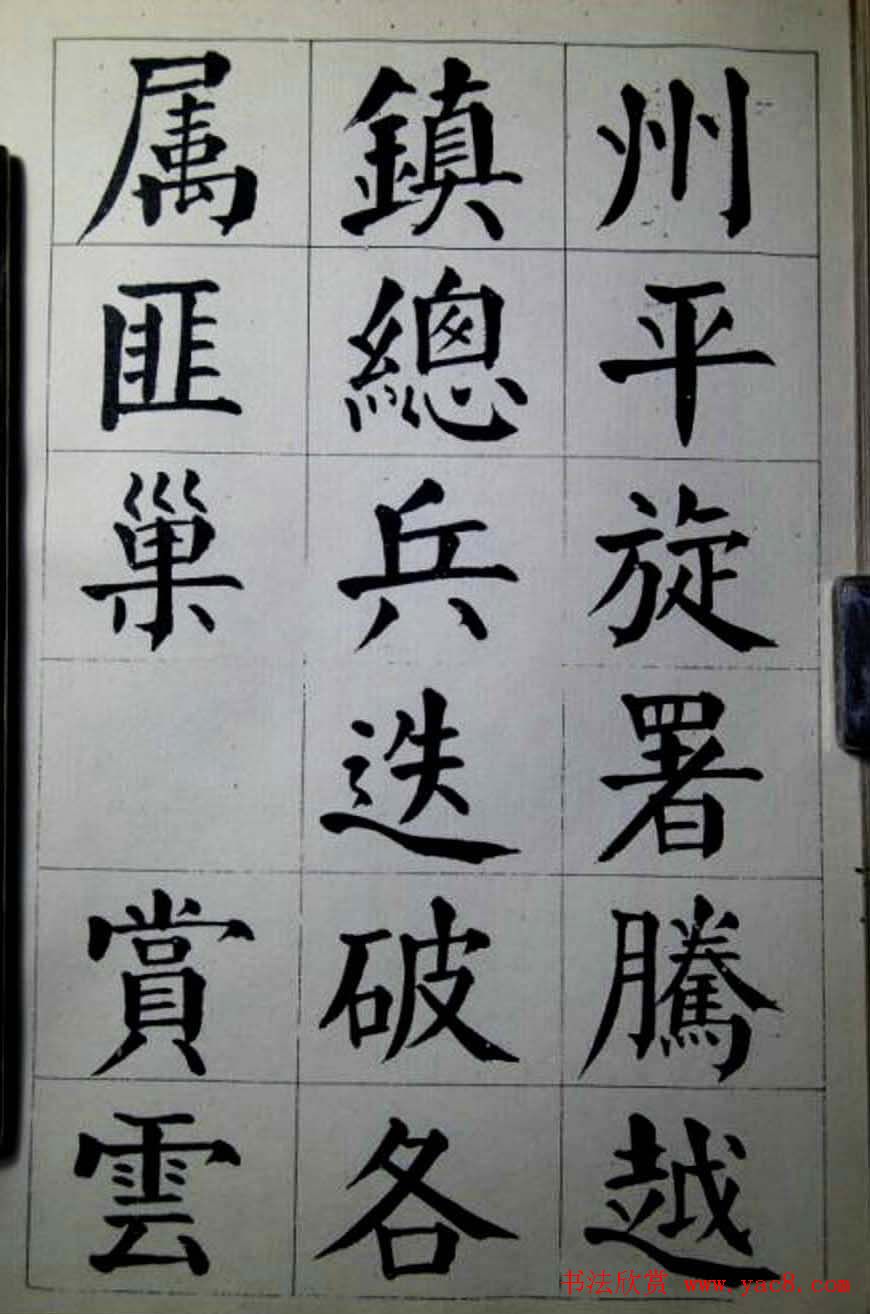 州平旋署騰越
鎮總兵迭破各
属匪巢 賞雲
书法欣赏 www.yac8.com